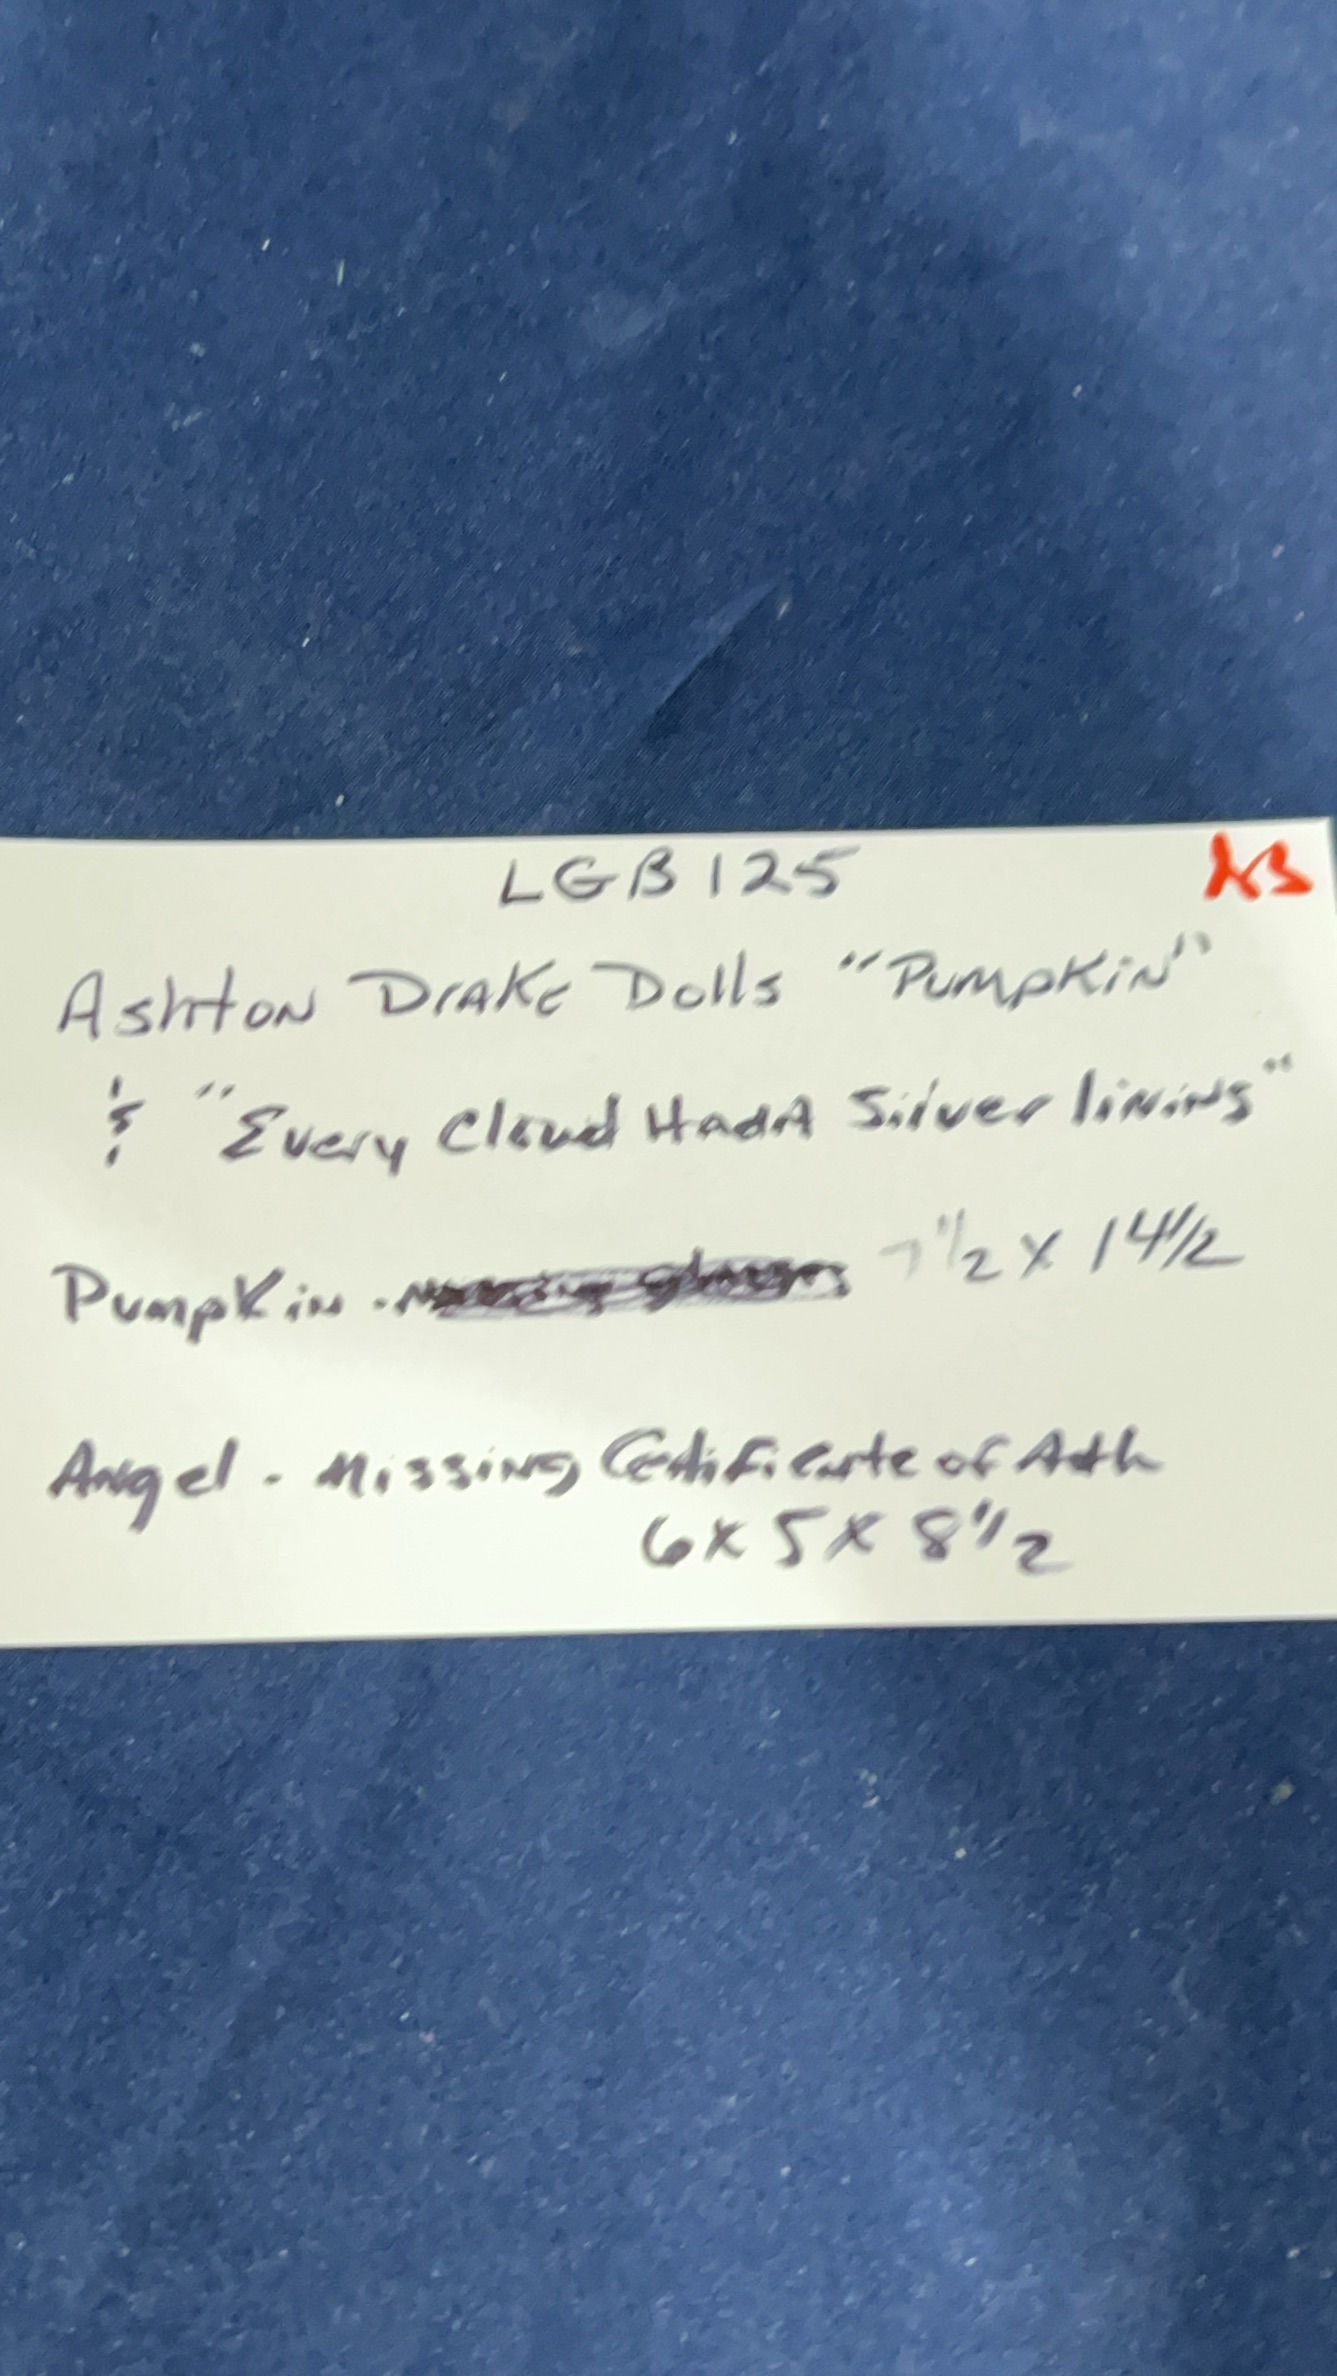 LGB 125
Ashton Drake Dolls "Pumpkin"
& "Every Cloud Had A Silver lining"
Pumpkin - 7 1/2 x 14 1/2
Angel - Missing Certificate of Auth
6 x 5 x 8 1/2